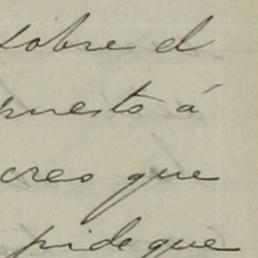 sobre el
puesto á
creo que
pide que